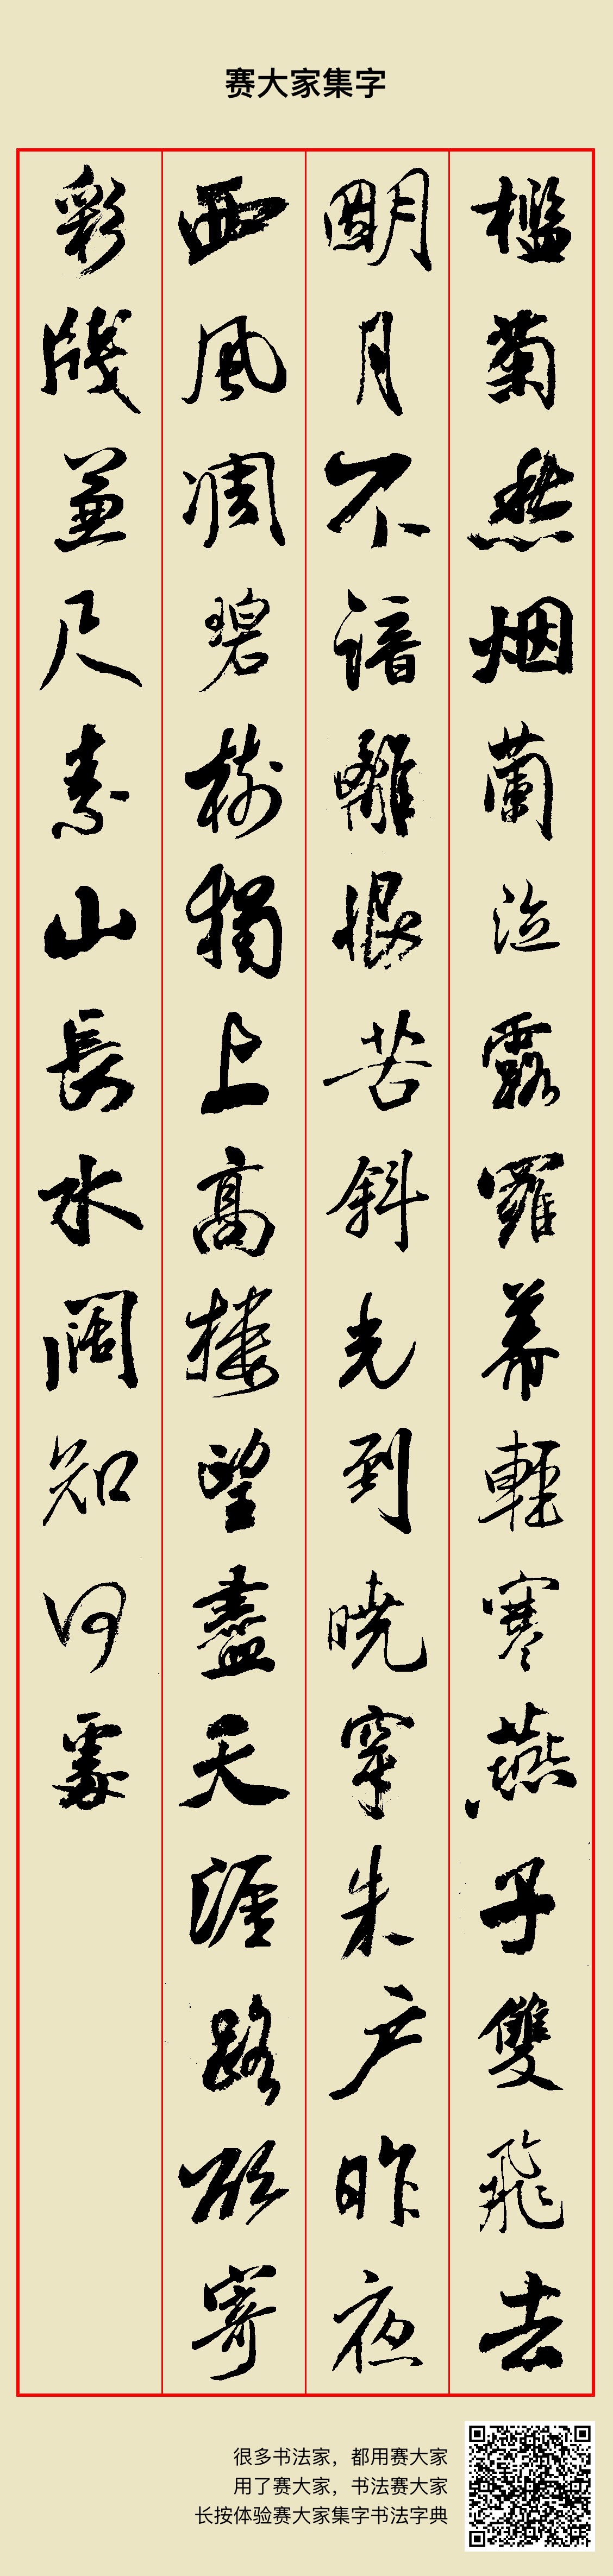 赛大家集字
檻菊愁烟蘭泣露羅幕輕寒燕子雙飛去
明月不諳離恨苦斜光到曉穿朱户昨夜
西風凋碧樹獨上高樓望盡天涯路欲寄
彩牋兼尺素山長水闊知何處
很多书法家，都用赛大家
用了赛大家，书法赛大家
长按体验赛大家集字书法字典